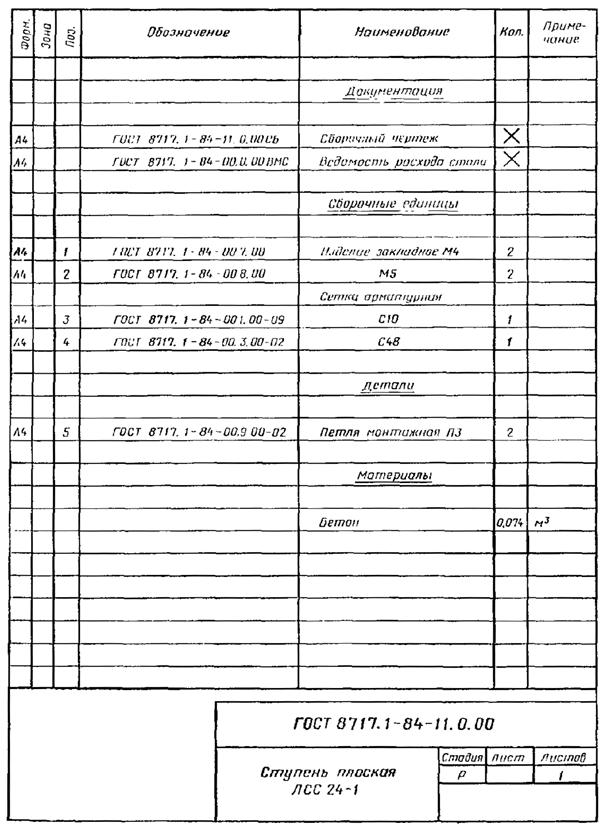 Форм. Зона Поз. Обозначение Наименование Кол. Приме-
чание
Документация
А4 ГОСТ 8717.1-84-11.0.00СБ Сборочный чертеж
А4 ГОСТ 8717.1-84-00.0.00ВМС Ведомость расхода стали
Сборочные единицы
А4 1 ГОСТ 8717.1-84-007.00 Изделие закладное М4 2
А4 2 ГОСТ 8717.1-84-008.00 М5 2
Сетка арматурная
А4 3 ГОСТ 8717.1-84-001.00-09 С10 1
А4 4 ГОСТ 8717.1-84-00.3.00-02 С48 1
Детали
А4 5 ГОСТ 8717.1-84-00.9 00-02 Петля монтажная П3 2
Материалы
Бетон 0,074 м³
ГОСТ 8717.1-84-11.0.00
Ступень плоская
ЛСС 24-1
Стадия Лист Листов
Р 1